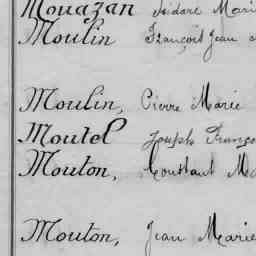 Mouazan Isidore Marie
Moulin François Jean
Moulin, Pierre Marie
Moutel Joseph Franço
Mouton, Constant Ma
Mouton, Jean Marie